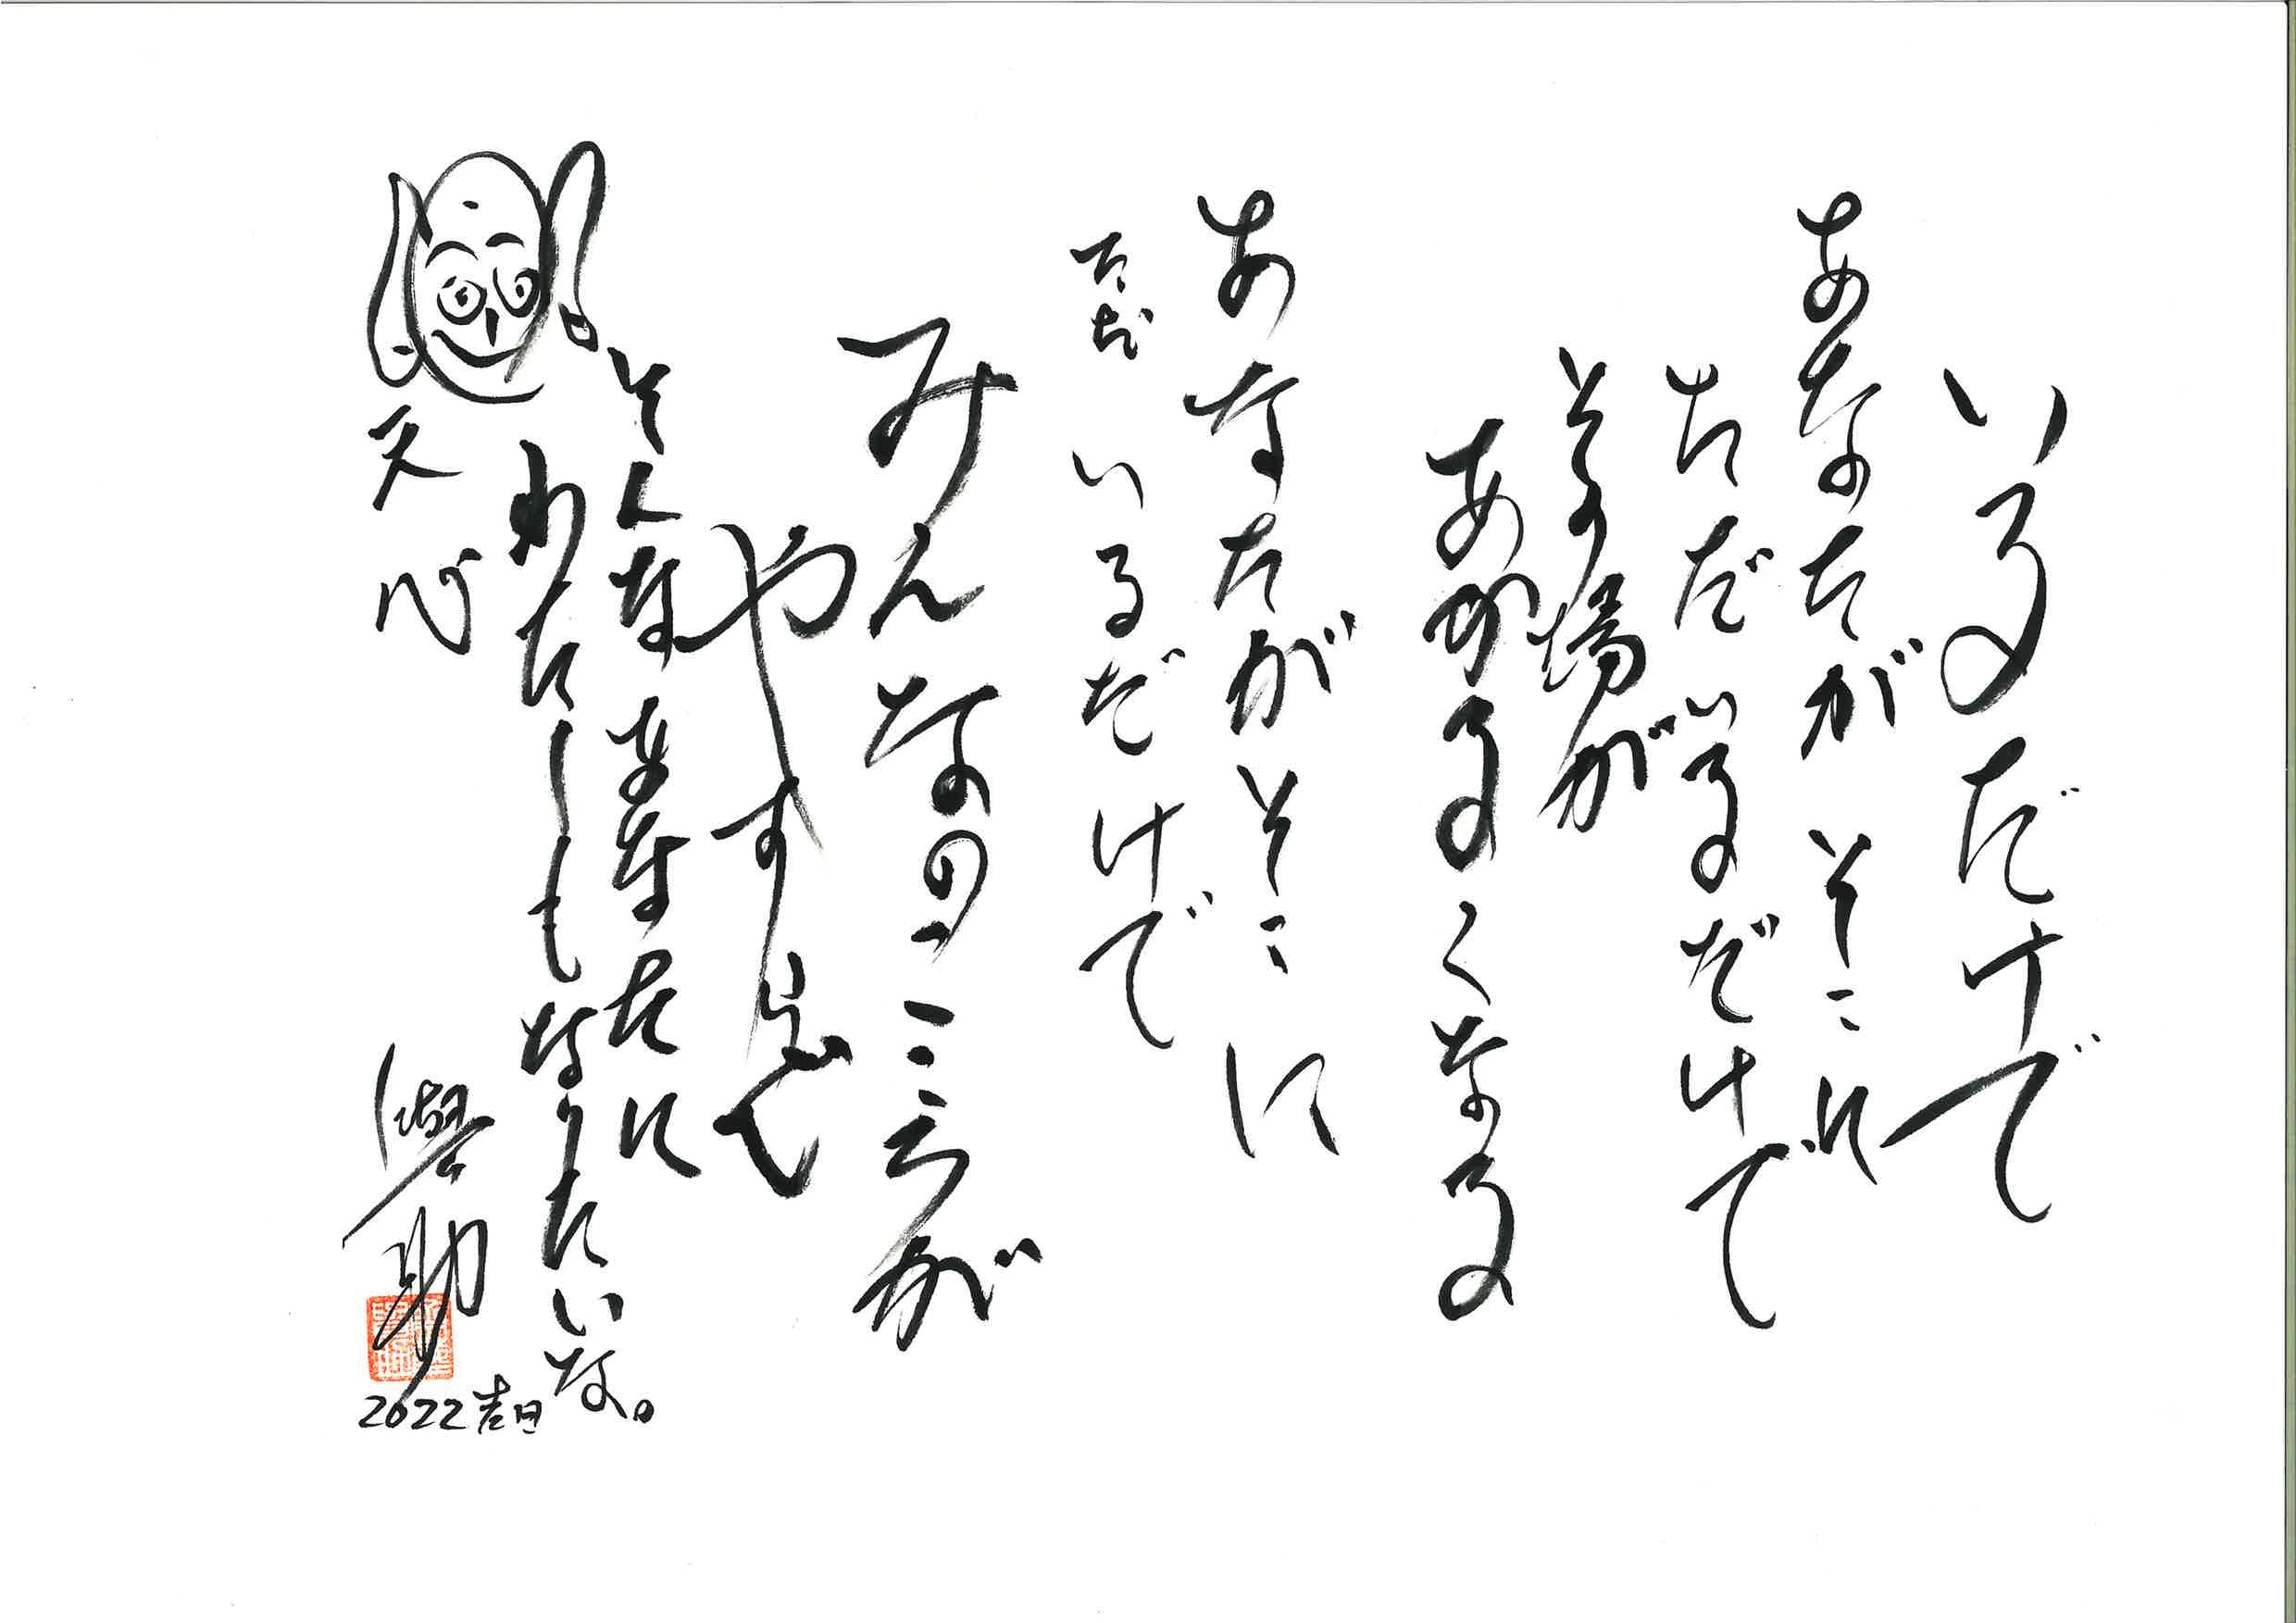 いるだけで
あなたがそこに
ただいるだけで
その場が
あかるくなる
あなたがそこに
ただいるだけで
みんなのこころが
やすらぐ
そんなあなたに
わたしもなりたいな。
天心
2022吉日